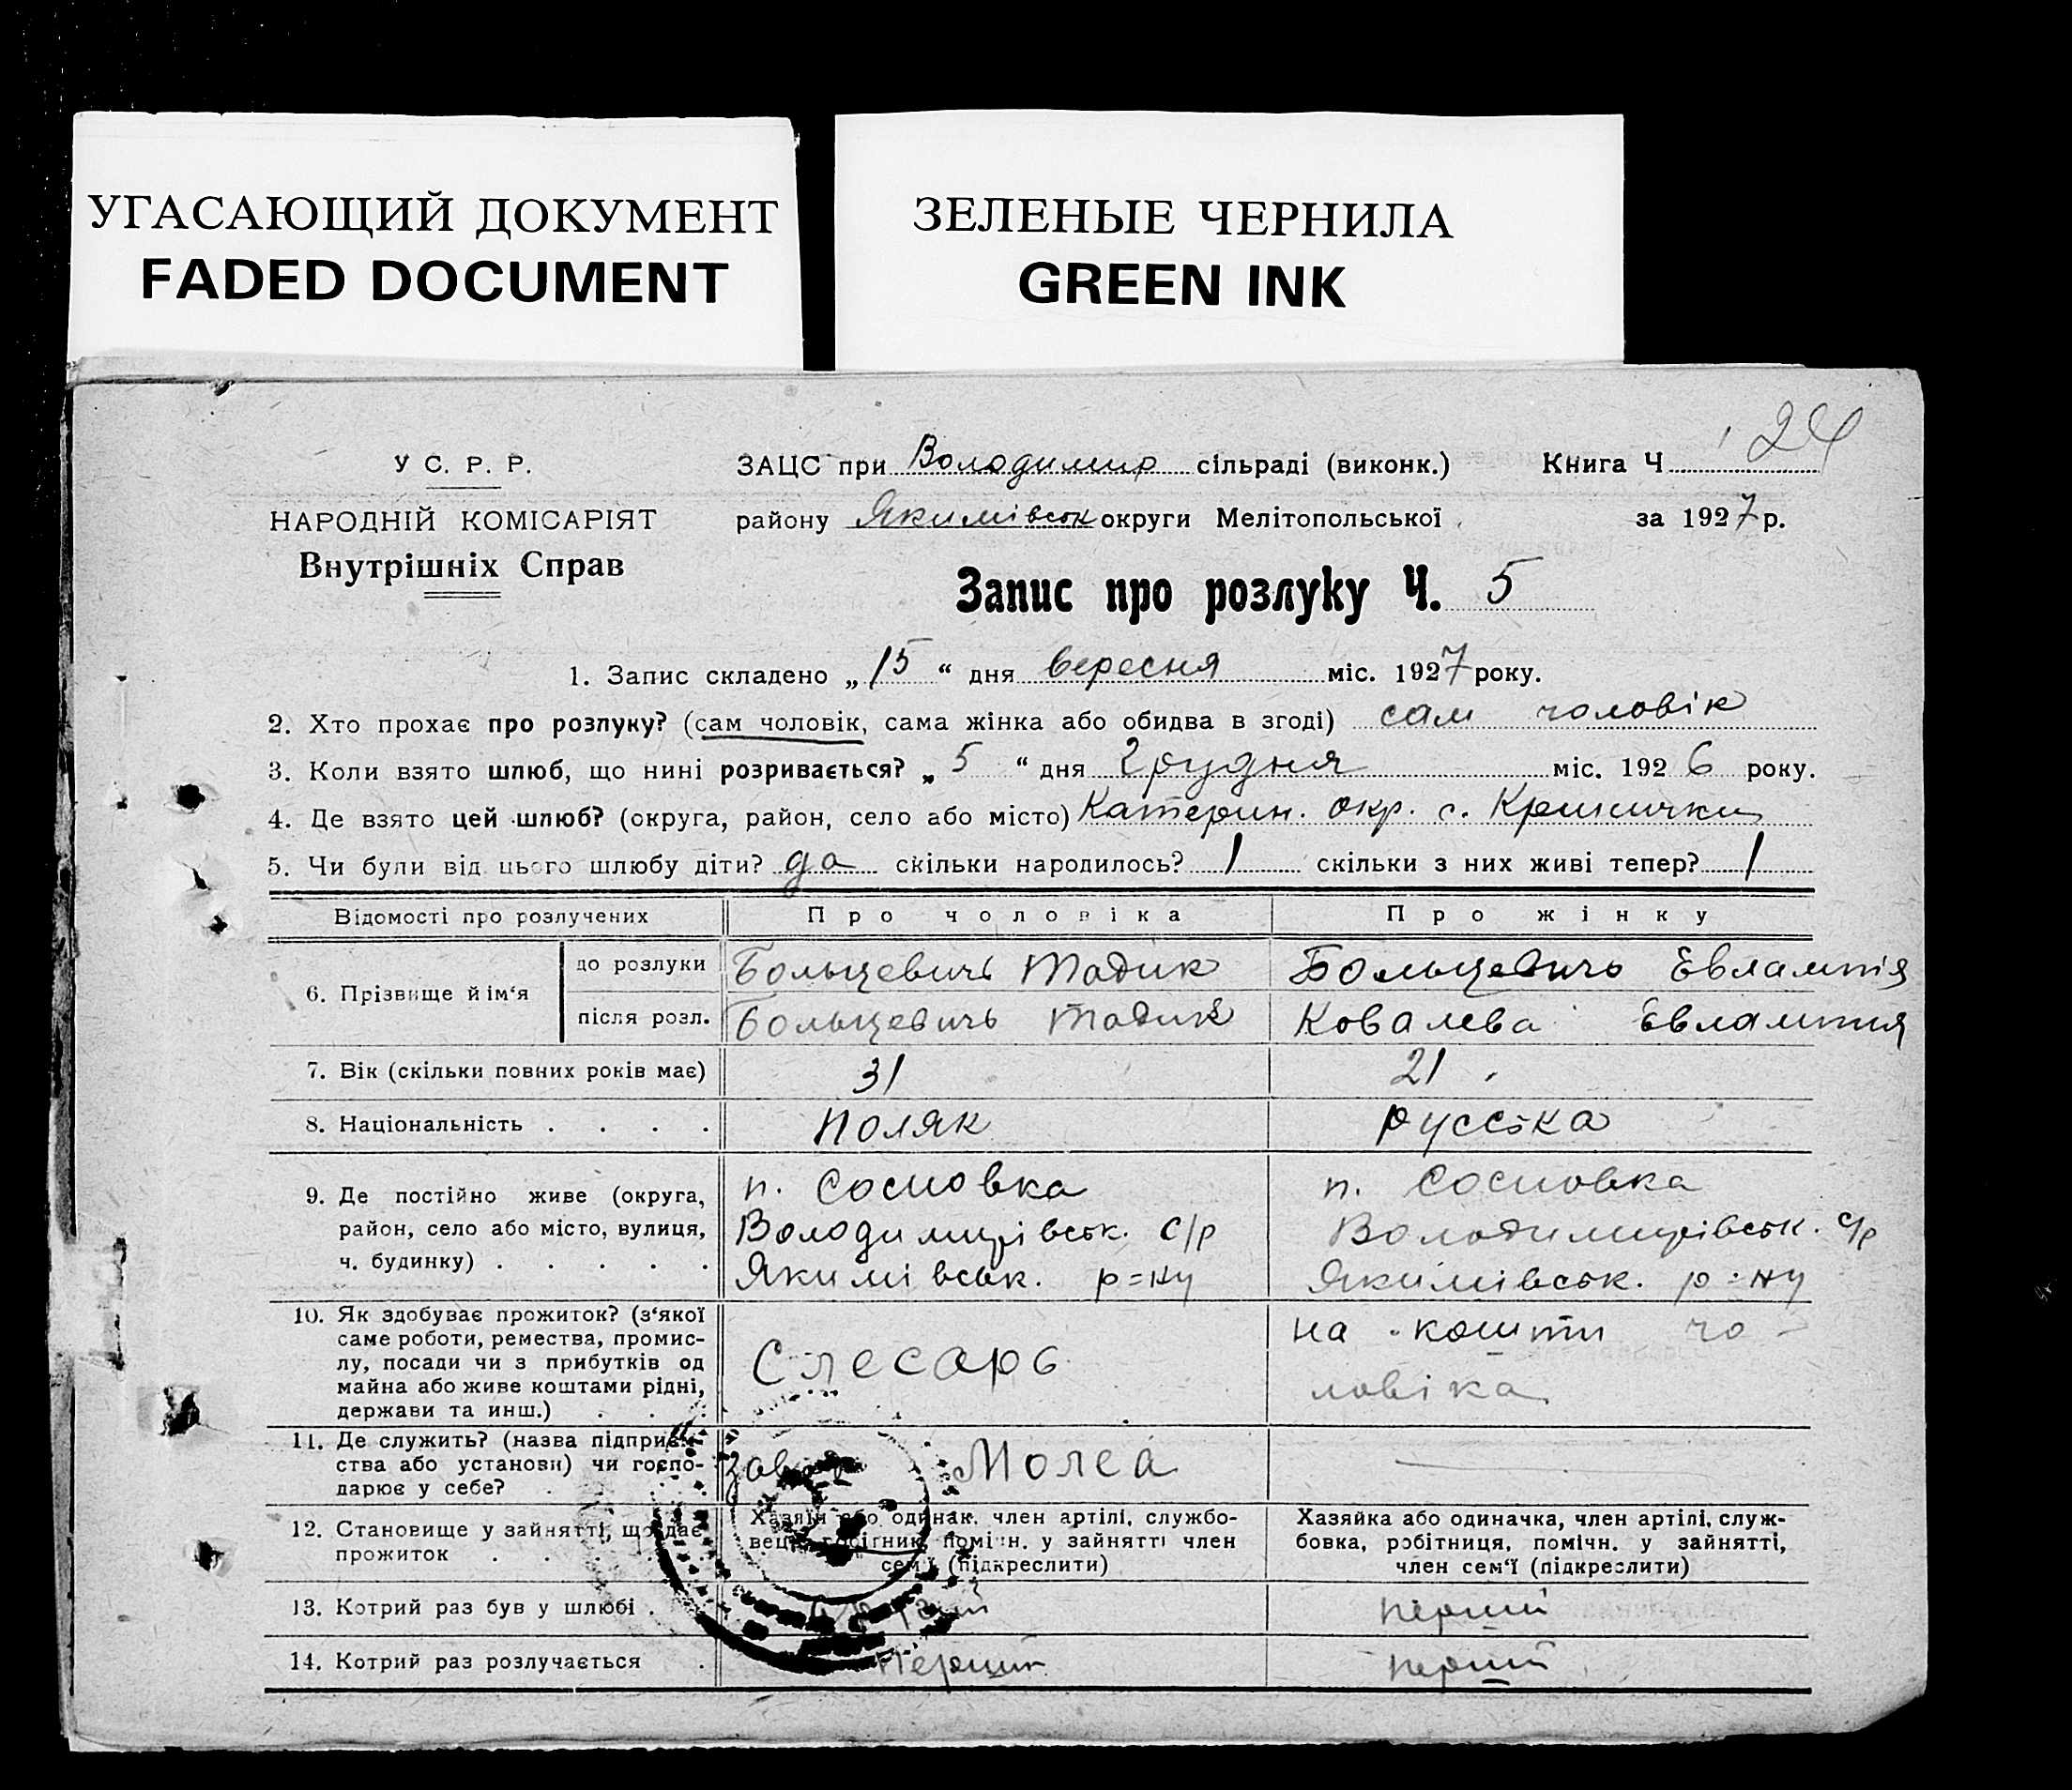 УГАСАЮЩИЙ ДОКУМЕНТ
FADED DOCUMENT
ЗЕЛЕНЫЕ ЧЕРНИЛА
GREEN INK
24
У С. Р. Р.
НАРОДНІЙ КОМІСАРІЯТ
Внутрішніх Справ
ЗАЦС при Володимир сільраді (виконк.) Книга Ч
району Якимівськ округи Мелітопольської за 1927 р.
Запис про розлуку Ч. 5
1. Запис складено „15“ дня вересня міс. 1927 року.
2. Хто прохає про розлуку? (сам чоловік, сама жінка або обидва в згоді) сам чоловік
3. Коли взято шлюб, що нині розривається? „5“ дня Грудня міс. 1926 року.
4. Де взято цей шлюб? (округа, район, село або місто) Катерин. окр. с. Кринички
5. Чи були від цього шлюбу діти? да скільки народилось? 1 скільки з них живі тепер? 1
Відомості про розлучених Про чоловіка Про жінку
6. Прізвище й ім'я
до розлуки Больцевичь Тадик Больцевичь Евлампія
після розл. Больцевичь Тадик Ковалева Евлампия
7. Вік (скільки повних років має) 31 21
8. Національність . . . . Поляк русська
9. Де постійно живе (округа, п. Сосновка п. Сосновка
район, село або місто, вулиця, Володимирівськ. с/р Володимирівськ. с/р
ч. будинку) . . . . . Якимівськ. р=ну Якимівськ. р=ну
10. Як здобуває прожиток? (з'якої
саме роботи, ремества, промис-
лу, посади чи з прибутків од
майна або живе коштами рідні,
держави та инш.) . . .
Слесарь
на кошти чо-
ловіка
11. Де служить? (назва підприєм-
ства або установи) чи госпо-
дарює у себе? .
Молеа
12. Становище у зайнятті, що дає
прожиток . . .
Хазяїн або одинак. член артілі, службо-
вець, робітник, помічн. у зайнятті член
сем'ї (підкреслити)
Хазяйка або одиначка, член артілі, служ-
бовка, робітниця, помічн. у зайнятті,
член сем'ї (підкреслити)
13. Котрий раз був у шлюбі . перший
14. Котрий раз розлучається . Перший перший